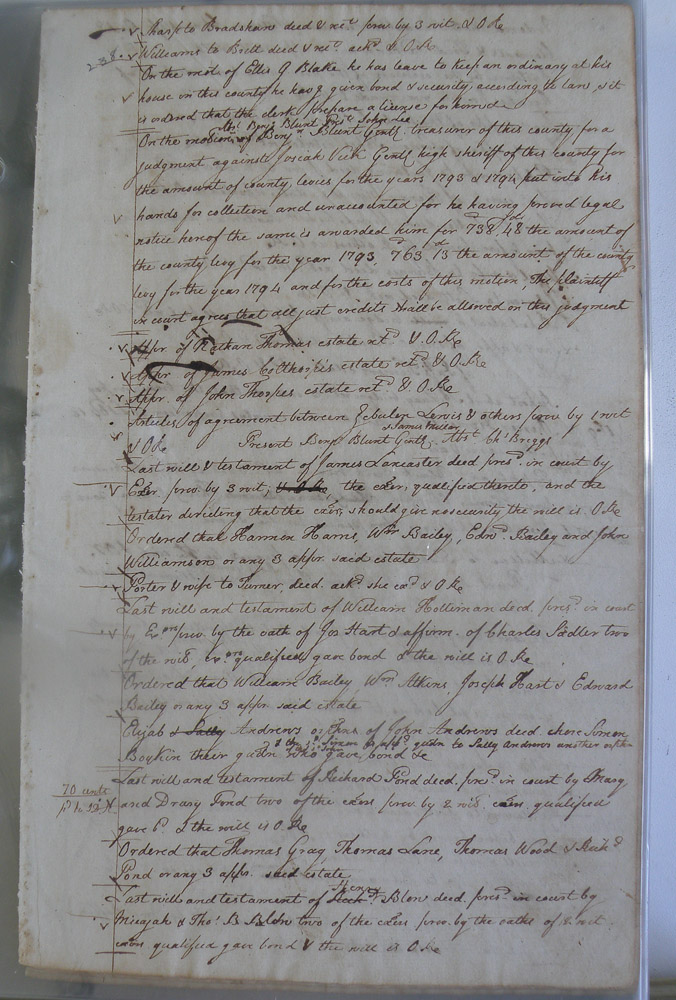 Tharp to Bradshaw deed & rect. prov. by 3 wit. & O Re
238.
Williams to Britt deed & rect. ackd. & O. Re
On the mot. of Ellis G Blake he has leave to keep an ordinary at his
house in this county he havg given bond & security, according to law, & it
is ordered that the clerk prepare a license for him &c
Abst. Benja. Blunt Prest. John Lee
On the motion of Benjn. Blunt Gentl. treasurer of this county, for a
judgment against Josiah Vick Gentl. high sheriff of this county for
the amount of county, levies for the years 1793 & 1794 put into his
hands for collection and unaccounted for he having proved legal
notice hereof the same is awarded him for 738 48 the amount of
the county, levy for the year 1793, 763 13 the amount of the county
levy for the year 1794 and for the costs of this motion, The plaintiff
in court agrees that all just credits shall be allowed on this judgment
Appr. of Nathan Thomas estate retd. & O. Re
Appr. of James estate retd. & O. Re
Appr. of John Thorpes estate retd. & O. Re
Articles of agreement between Zebulon Lewis & others prov. by 1 wit
& O Re
Present Benja. Blunt Gentl. & James Fuller Abst. Chs. Briggs
Last will & testament of James Lancaster deed. presd. in court by
Exer. prov. by 3 wit; & O. Re, the exer, qualified thereto, and the
testater directing that the exer, should give no security, the will is O. Re
Ordered that Harmin Harris, Wm Bailey, Edwd. Bailey and John
Williamson or any 3 appr. said estate
Porter & wife to Turner, deed. ackd. she exd. & O Re
Last will and testament of William Holleman deed. presd. in court
by Exors prov. by the oath of Jos Hart & affirm. of Charles Sadler two
of the wits, exors qualified gave bond & the will is O Re
Ordered that William Bailey, Wm Atkins, Joseph Hart & Edward
Bailey or any 3 appr. said estate
Elizab & Sally Andrews orphns of John Andrews deed. chose Simon
Boykin their guadn who gave bond &c
Simon is apptd. guadn to Sally Andrews another orph
Last will and testament of Richard Pond deed. presd. in court by
70 cents
and Drasy Pond two of the exers prov. by 2 wits. exers. qualified
gave bd. & the will is O. Re
Ordered that Thomas Gray, Thomas Lane, Thomas Wood & Richd
Pond or any 3 appr. said estate
Last will and testament of Henry Blow deed. presd. in court by
Micajah & Thos. B Blow two of the exers prov. by the oaths of 2 wit
exers qualified gave bond & the will is O Re